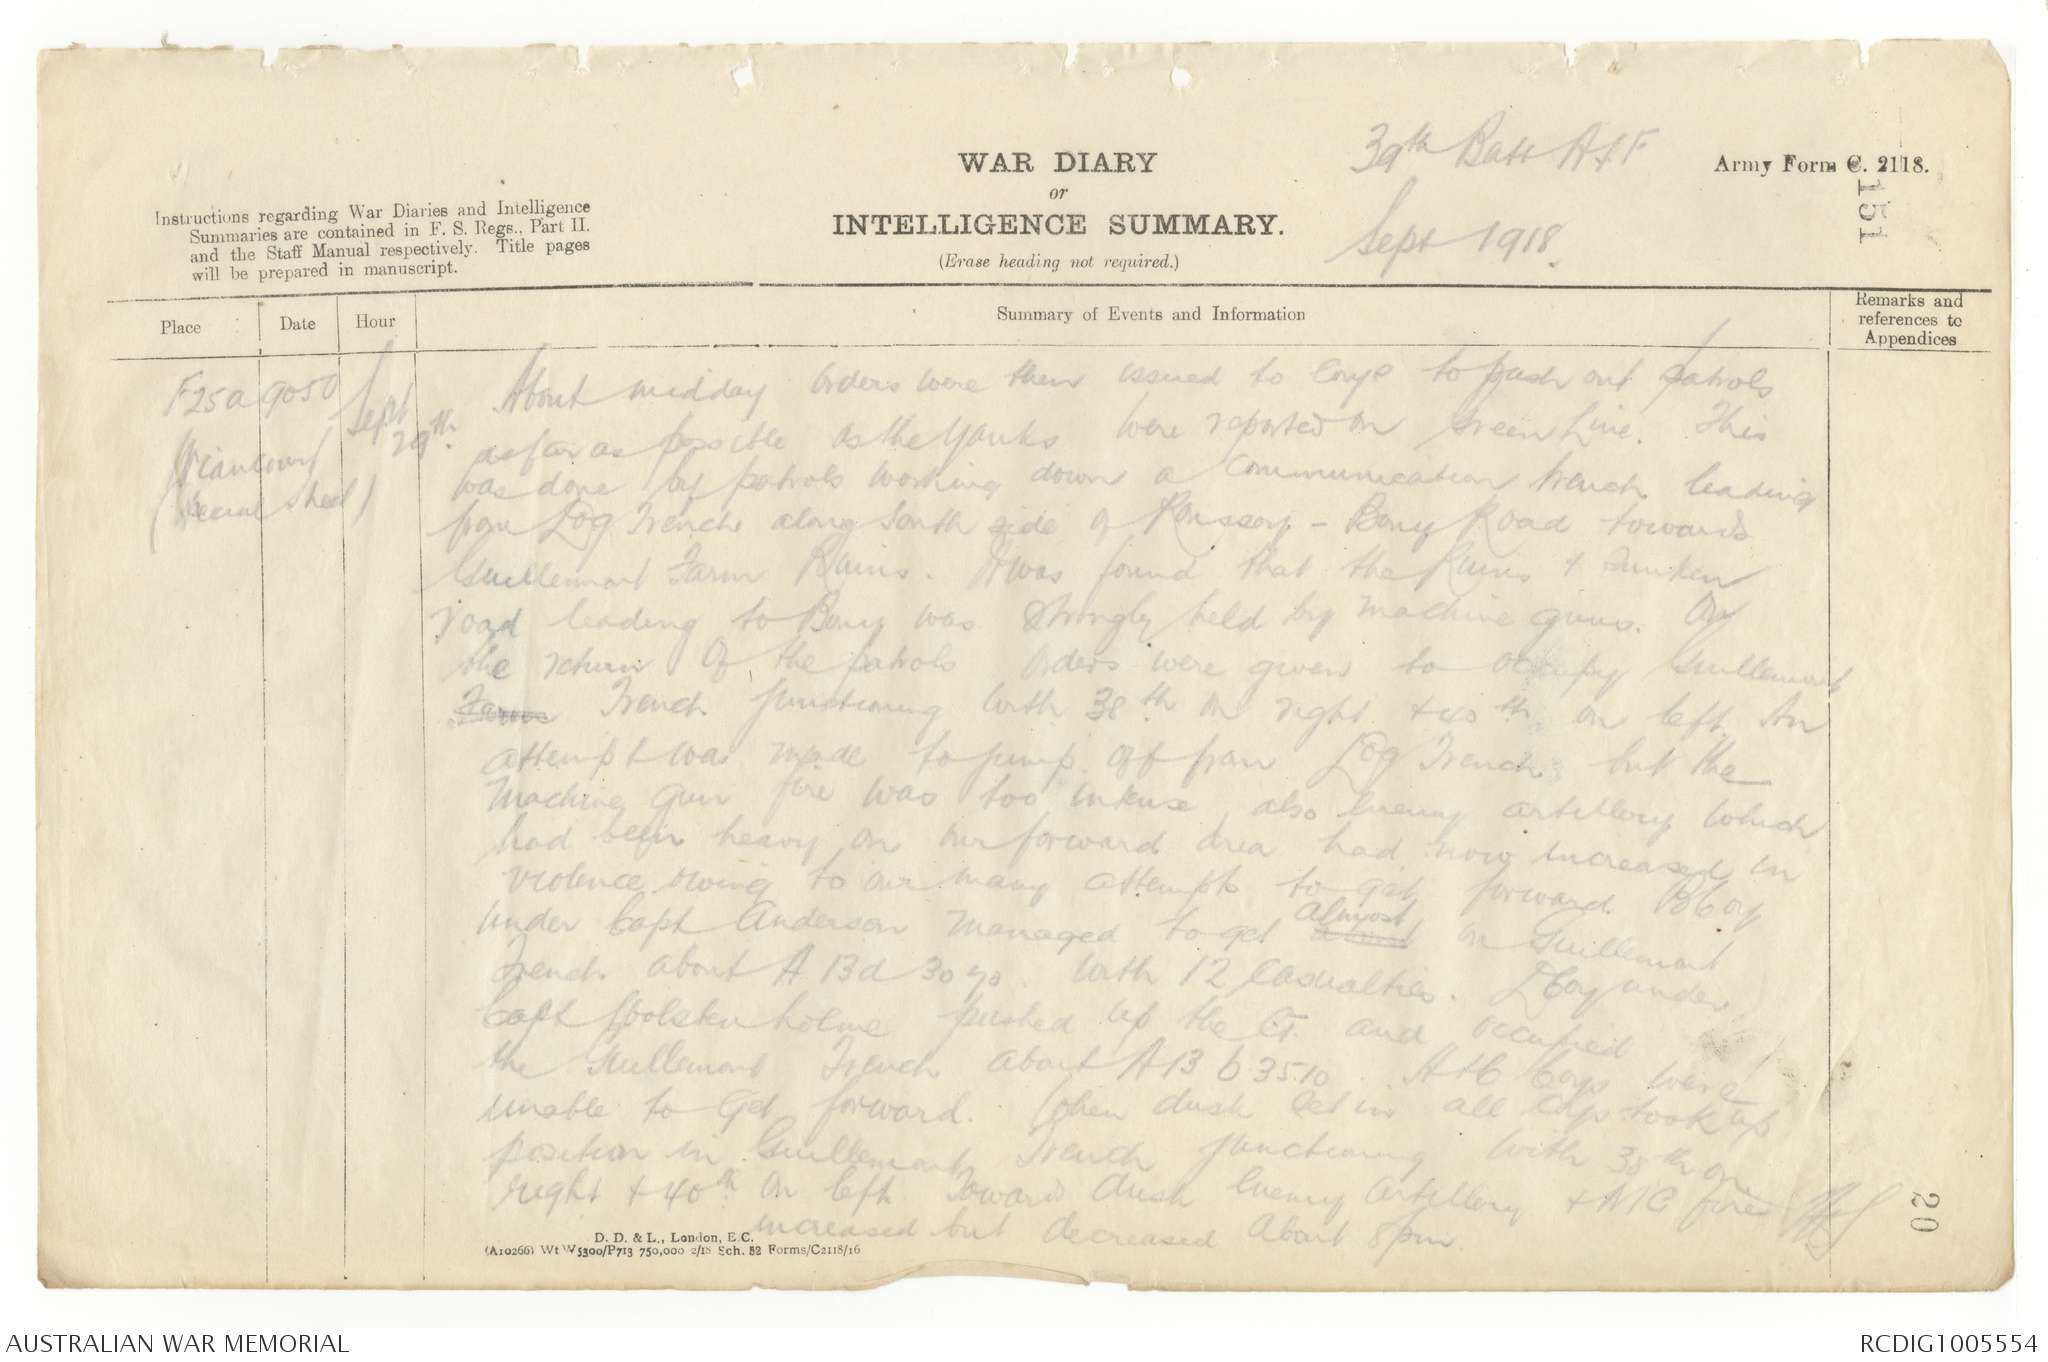 39th Batt AIF
WAR DIARY
or
INTELLIGENCE SUMMARY.
(Erase heading not required.)
Sept 1918.
Army Form C. 2118.
151
Instructions regarding War Diaries and Intelligence
Summaries are contained in F. S. Regs., Part II.
and the Staff Manual respectively. Title pages
will be prepared in manuscript.
Place
Date
Hour
Summary of Events and Information
Remarks and
references to
Appendices
F25a 9050
(Wiancourt
Special Sheet)
Sept
29th.
About midday orders were then issued to Coys to push out patrols
as far as possible as the Yanks were reported on Green Line. This
was done by patrols working down a communication trench leading
from Dog Trench along South side of Ronssoy - Bony Road towards
Guillemont Farm Ruins. It was found that the Ruins & sunken
road leading to Bony was strongly held by machine guns. On
the return of the patrols orders were given to occupy Guillemont
Farm Trench junctioning with 38th on right & 40th on left. An
attempt was made to jump off from Dog Trench but the
Machine gun fire was too intense also enemy artillery which
had been heavy on our forward area had now increased in
violence owing to our many attempts to get forward. B Coy
under Capt Anderson managed to get almost on Guillemont
Trench about A 13 d 30 70. with 12 casualties. D Coy under
Capt pushed up the C.T. and occupied
the Guillemont Trench about A 13 b 35.10. A & C Coys were
unable to get forward. When dusk set in all Coys took up
position in Guillemont Trench junctioning with 38th on
right & 40th on left. Towards dusk enemy artillery & MG fire
increased but decreased about 8 pm.
20
D. D. & L., London, E.C.
(A10266) Wt W5300/P713 750,000 2/18 Sch. 52 Forms/C2118/16
AUSTRALIAN WAR MEMORIAL
RCDIG1005554